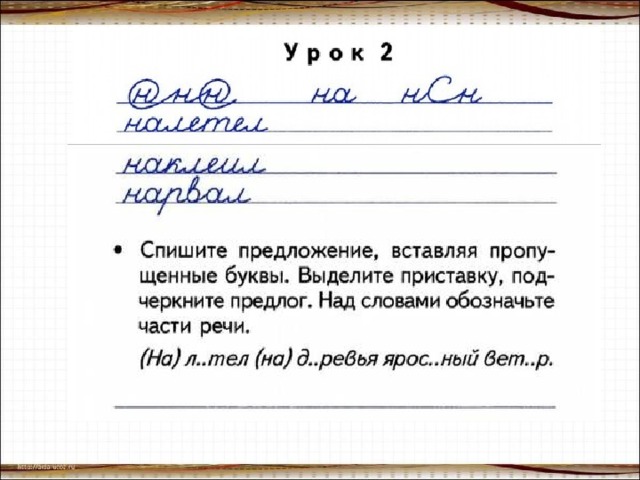 Урок 2
н н н на нСн
налетел
наклеил
нарвал
• Спишите предложение, вставляя пропу-
щенные буквы. Выделите приставку, под-
черкните предлог. Над словами обозначьте
части речи.
(На) л..тел (на) д..ревья ярос..ный вет..р.